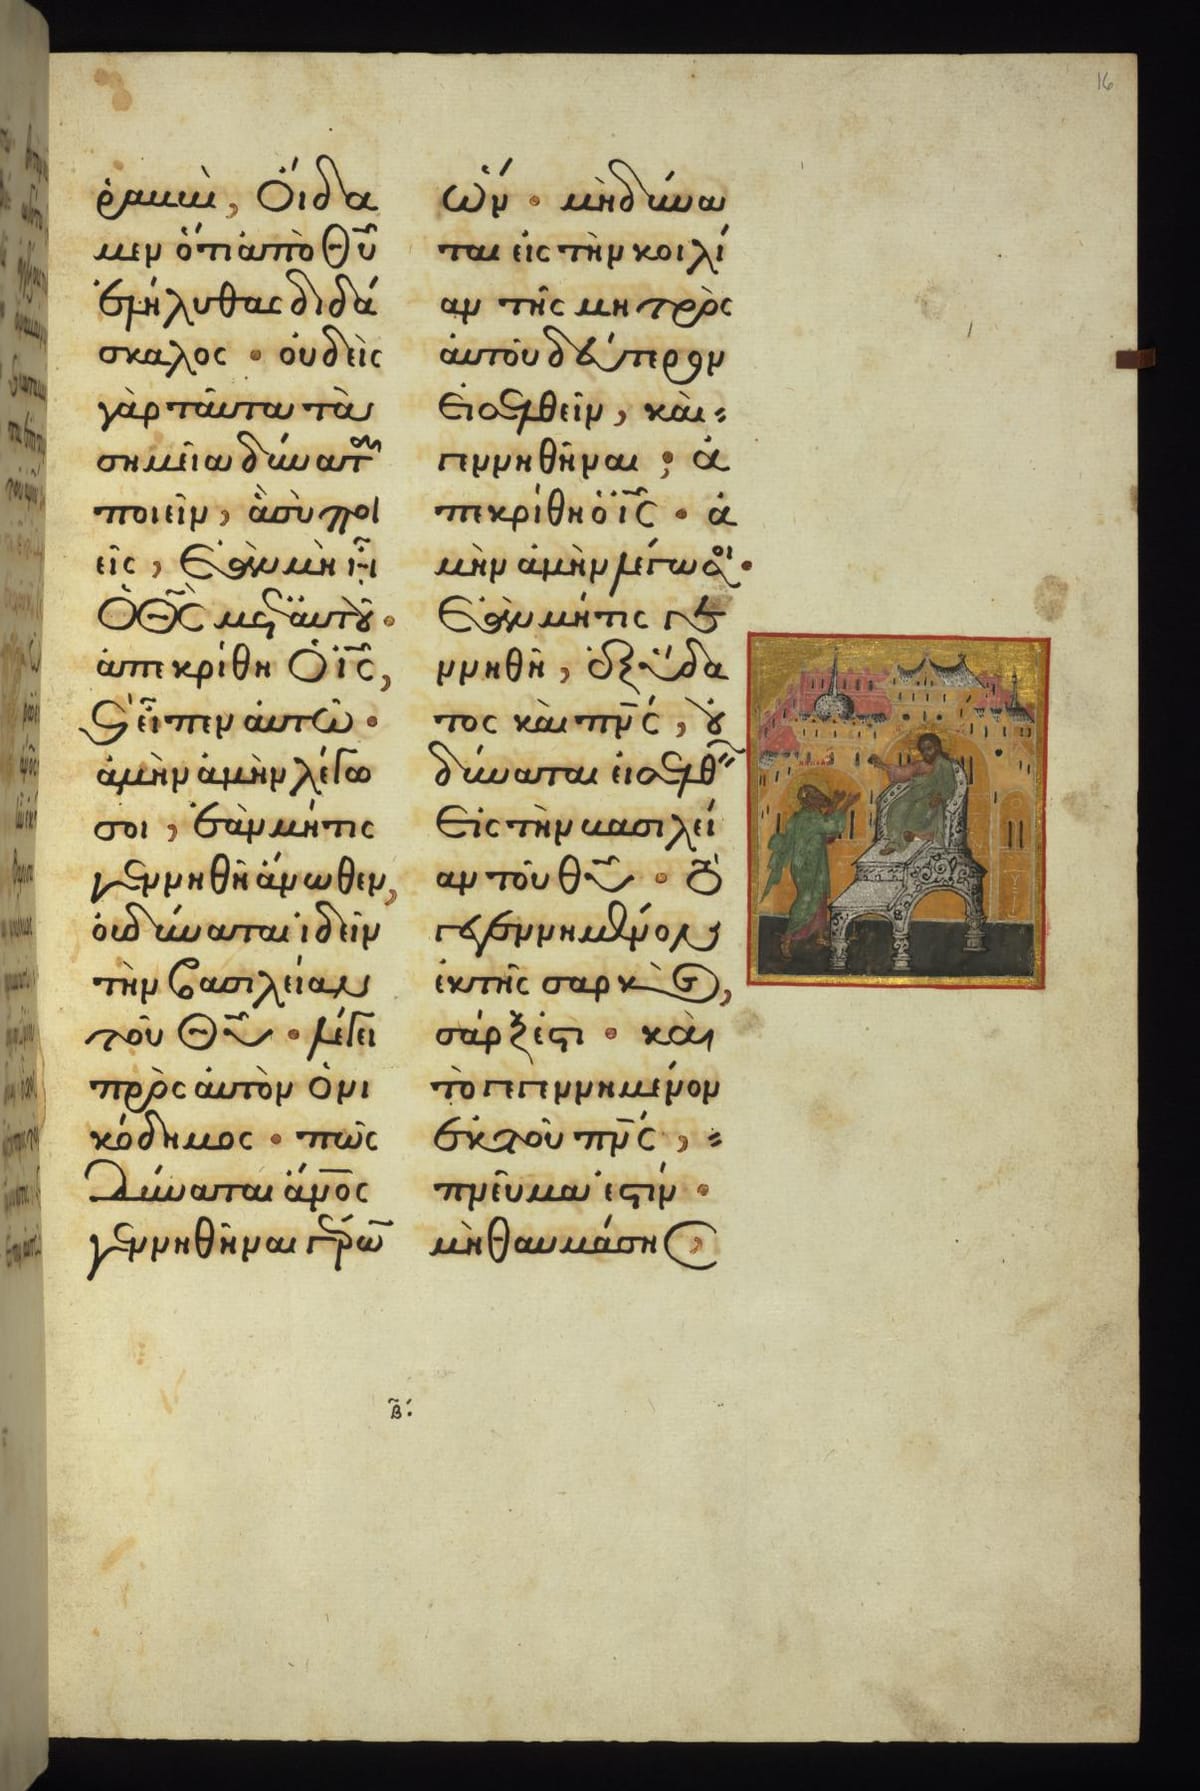 16
ῥαββὶ, Ὅιδα
μεν ὅτι ἀπὸ Θῦ
ἐλήλυθας διδά
σκαλος · οὐδεὶς
γὰρ ταῦτα τὰ
σημεῖα δύναται
ποιεῖν, ἃ σὺ ποι
εῖς, Ἐὰν μὴ ἦ
Ὁ Θς̃ μετ' ἀυτοῦ ·
ἀπεκρίθη Ὁ ἰς̃,
κ̀ εἶπεν ἀυτῶ ·
ἀμὴν ἀμὴν λέγω
σοι, ἐὰν μήτις
γεννηθῆ ἄνωθεν,
οὐ δύναται ἰδεῖν
τὴν βασιλείαν
τοῦ Θῦ · λέγει
πρὸς ἀυτὸν Ὁ νι
κόδημος · πῶς
δύναται ἄνο̅ς
γεννηθῆναι γέρω̅
ὤν · μὴ δύνα
ται εἰς τὴν κοιλί
αν τῆς μητρὸς
ἀυτοῦ δεύτερον
Εἰσελθεῖν, καὶ =
γεννηθῆναι ; ἀ
πεκρίθη ὁ ἰς̃ · ἀ
μὴν ἀμὴν λέγω σοι ·
Ἐὰν μήτις γε
ννηθῆ, ἐξ ὕδα
τος καὶ πν̅ς, οὐ
δύναται εἰσελθεῖν
Εἰς τὴν βασιλεί
αν τοῦ θῦ · Τὸ
γεγεννημένον
ἐκ τῆς σαρκὸς,
σάρξ ἐστι · καὶ
τὸ γεγεννημένον
ἐκ τοῦ πν̅ς, =
πνεῦμα ἐστίν ·
μὴ θαυμάσης,
β̃: